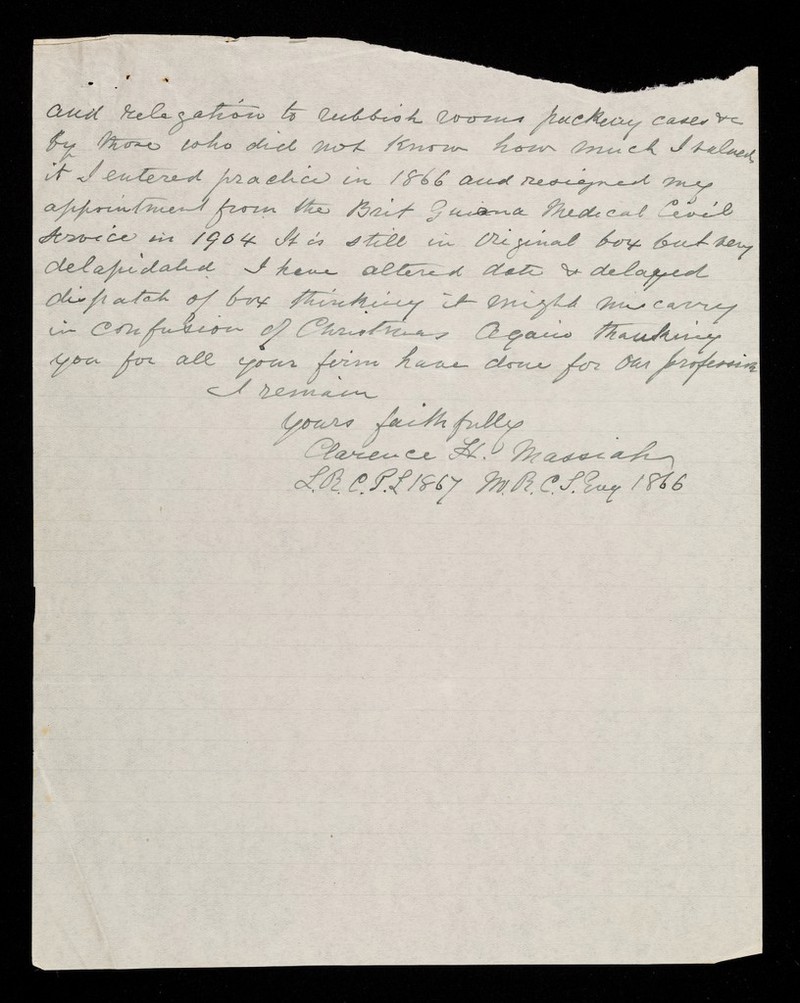 and relegation to rubbish rooms packing cases &c
by those who did not know how much I valued
it I entered practice in 1866 and resigned my
appointment from the Brit Guiana Medical Civil
Service in 1904 It is still in original box but very
delapidated I have altered date & delayed
dispatch of box thinking it might miscarry
in confusion of Christmas Again thanking
you for all your firm have done for our profession
I remain
yours faithfully
Clarence H. Massiah
L.R.C.P.L 1867 M.R.C.S. Eng 1866